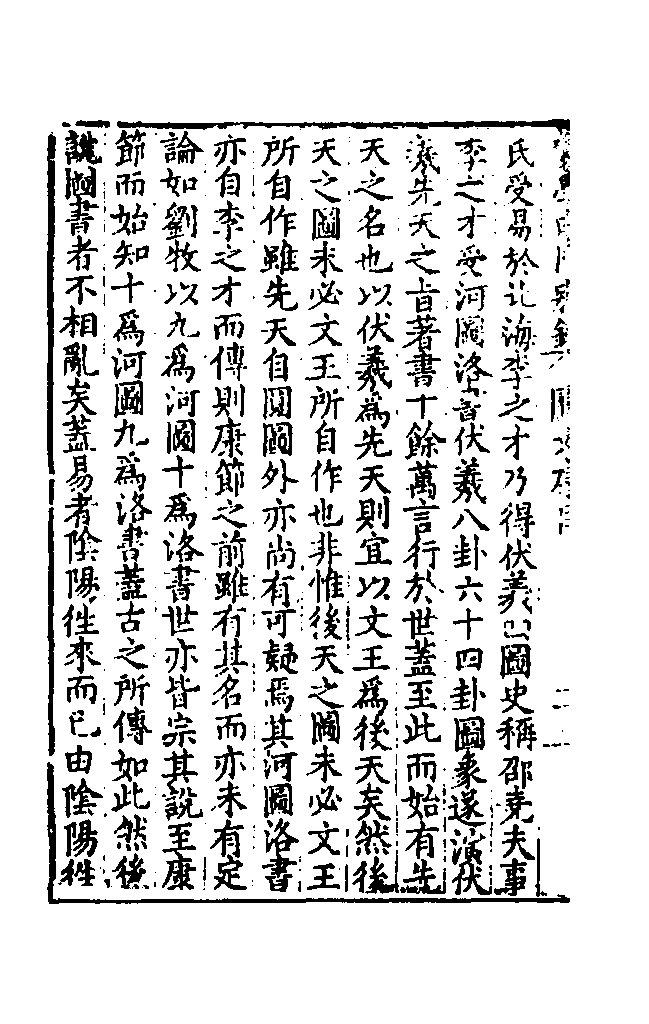 氏受易於北海李之才乃得伏羲四圖史稱邵堯夫事
李之才受河圖洛書伏羲八卦六十四卦圖象遂演伏
羲先天之旨著書十餘萬言行於世蓋至此而始有先
天之名也以伏羲為先天則宜以文王為後天矣然後
天之圖未必文王所自作也非惟後天之圖未必文王
所自作雖先天自圓圖外亦尚有可疑焉其河圖洛書
亦自李之才而傳則康節之前雖有其名而亦未有定
論如劉牧以九為河圖十為洛書世亦皆宗其說至康
節而始知十為河圖九為洛書蓋古之所傳如此然後
說圖書者不相亂矣蓋易者陰陽徃來而已由陰陽徃